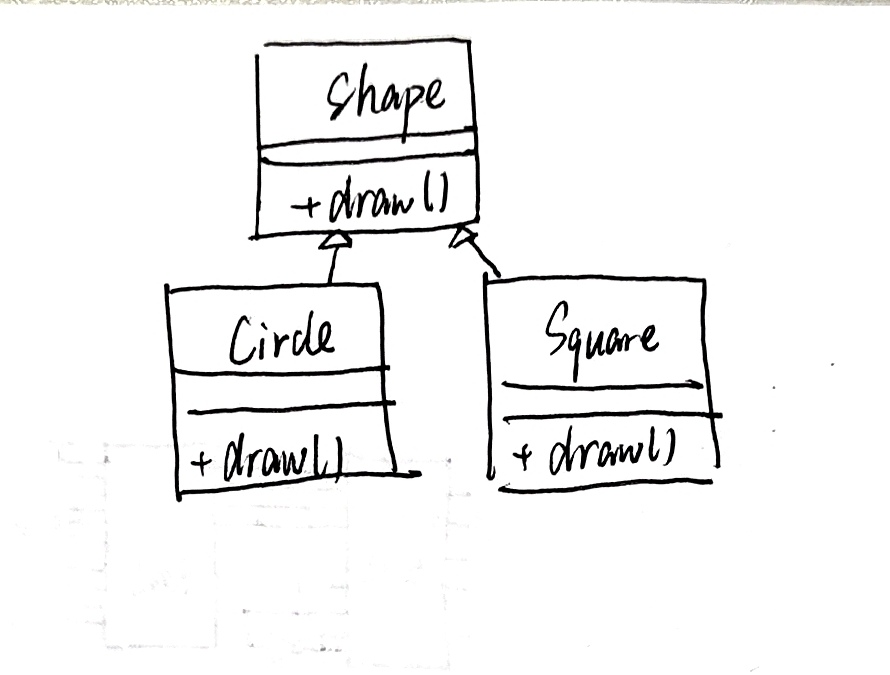 Shape
+draw()
Circle
+draw()
Square
+ draw()